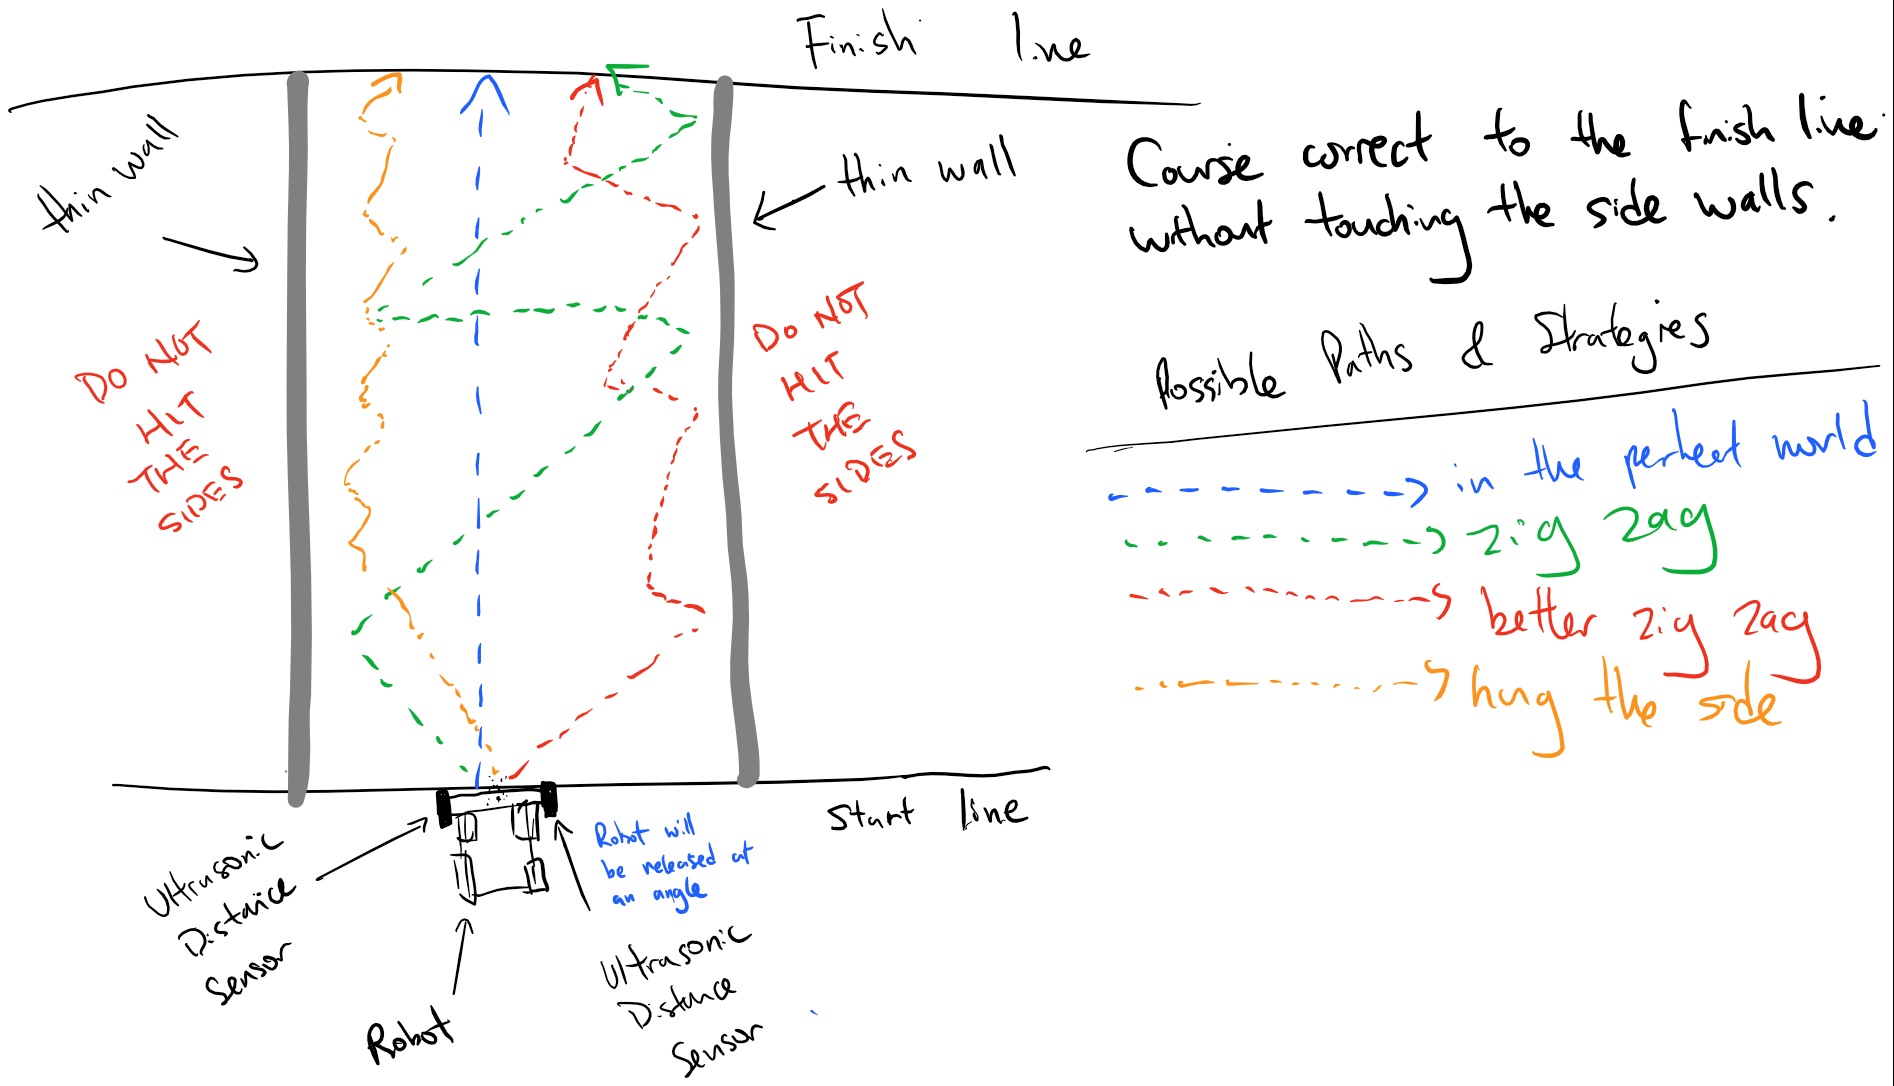 Finish line
thin wall
thin wall
Course correct to the finish line
without touching the side walls.
DO NOT
HIT
THE
SIDES
DO NOT
HIT
THE
SIDES
Possible Paths & Strategies
in the perfect world
zig zag
better zig zag
hug the side
start line
Ultrasonic
Distance
Sensor
Robot will
be released at
an angle
Robot
Ultrasonic
Distance
Sensor